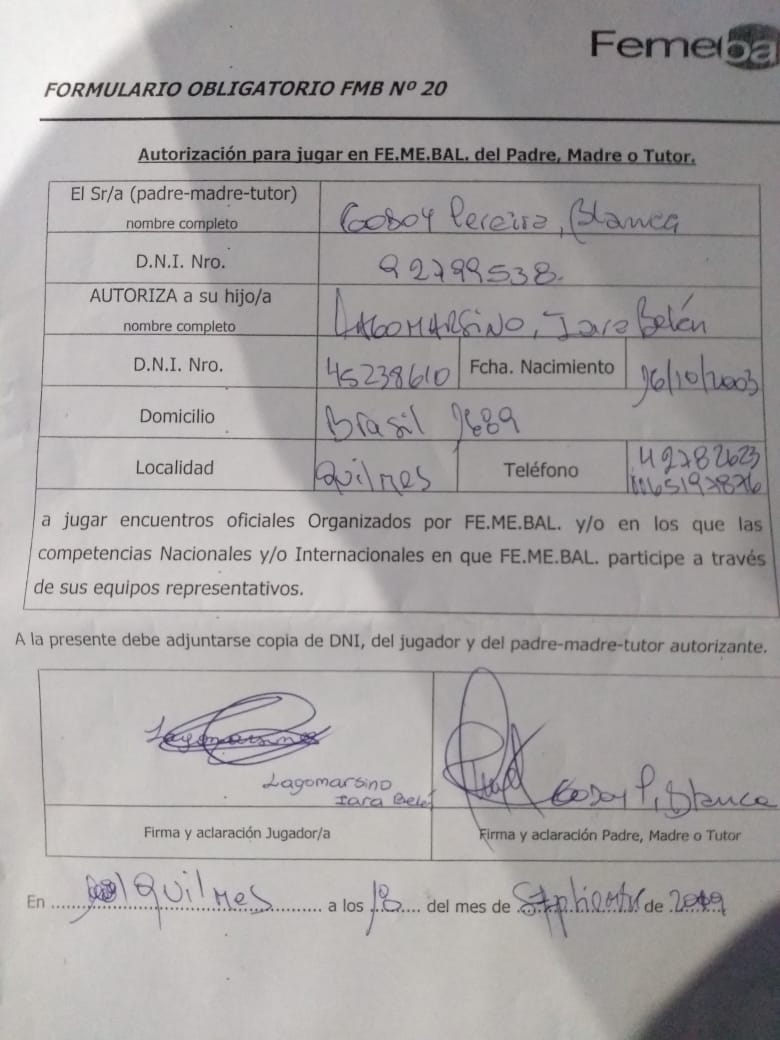 Femeba
FORMULARIO OBLIGATORIO FMB Nº 20
Autorización para jugar en FE.ME.BAL. del Padre, Madre o Tutor.
El Sr/a (padre-madre-tutor) nombre completo Godoy Pereira, Blanca
D.N.I. Nro. 92799538
AUTORIZA a su hijo/a nombre completo LAGOMARSINO, Iara Belén
D.N.I. Nro. 45238610 Fcha. Nacimiento 16/10/2003
Domicilio Brasil 1689
Localidad Quilmes Teléfono 42782623
1165197876
a jugar encuentros oficiales Organizados por FE.ME.BAL. y/o en los que las
competencias Nacionales y/o Internacionales en que FE.ME.BAL. participe a través
de sus equipos representativos.
A la presente debe adjuntarse copia de DNI, del jugador y del padre-madre-tutor autorizante.
Lagomarsino
Lagomarsino
Iara Belén
Godoy P, Blanca
Firma y aclaración Jugador/a Firma y aclaración Padre, Madre o Tutor
En Quilmes a los 18 del mes de Septiembre de 2019